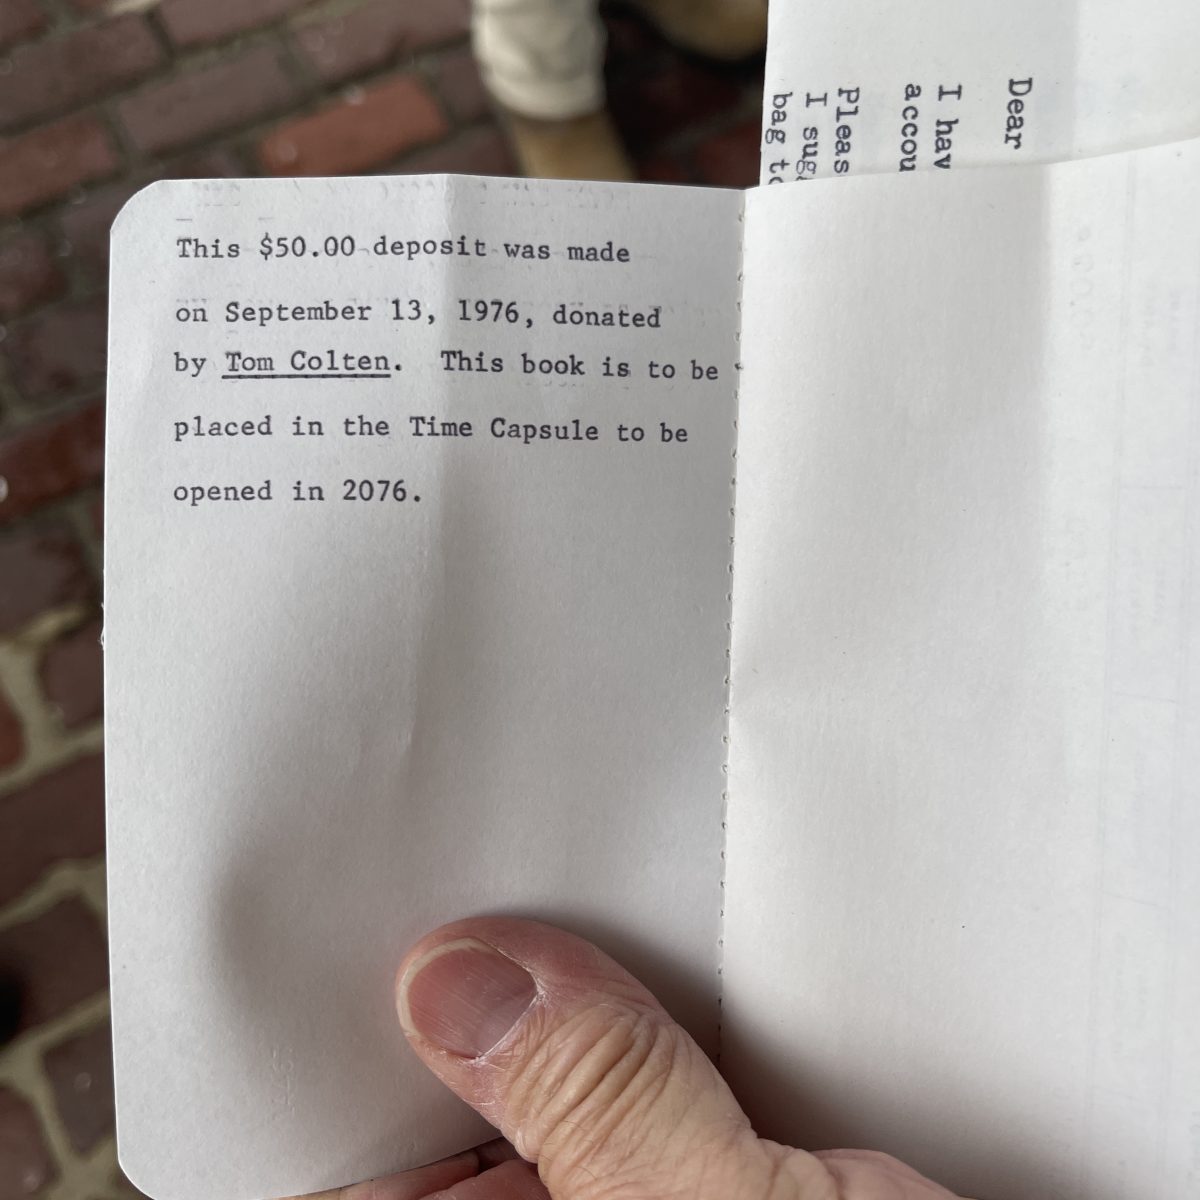 This $50.00 deposit was made
on September 13, 1976, donated
by Tom Colten. This book is to be
placed in the Time Capsule to be
opened in 2076.
Dear
I hav
accou
Pleas
I sug
bag to